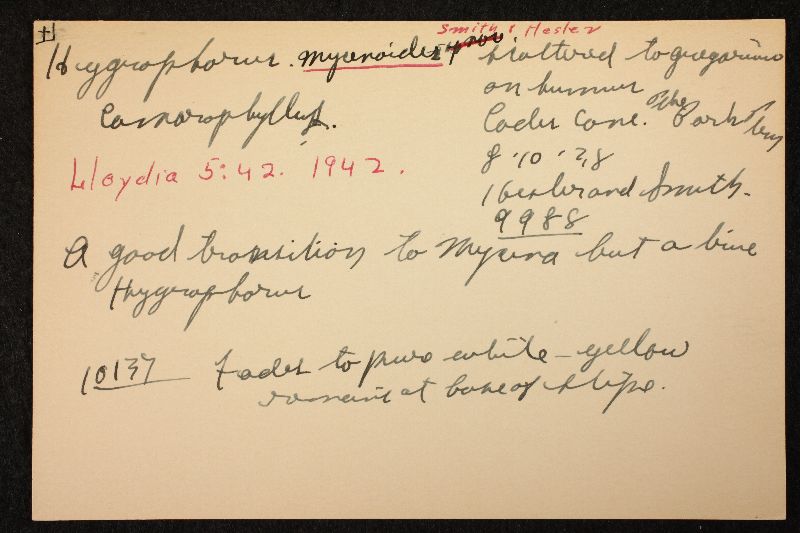 Smith & Hesler
Hygrophorus. mycenoides sp nov. Scattered to gregarious
on humus
Camarophyllus.
Cades Cove. The Park Tenn
8-10-38
Lloydia 5:42. 1942.
Hesler and Smith.
9988
A good transition to Mycena but a true
Hygrophorus
10137 Fades to pure white - yellow
remains at base of stipe.